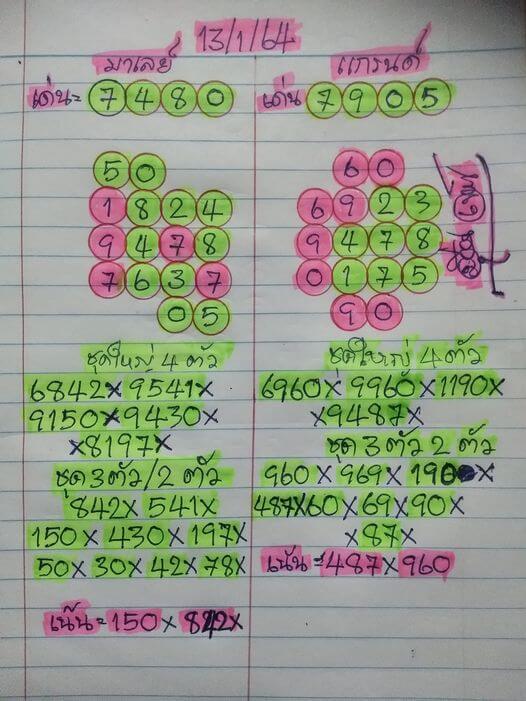 13/1/64
มาเลย์
เด่น= 7 4 8 0
5 0
1 8 2 4
9 4 7 8
7 6 3 7
0 5
ชุดใหญ่ 4 ตัว
6842x 9541x
9150x9430x
x8197x
ชุด 3 ตัว/2 ตัว
842x 541x
150x 430x 197x
50x 30x 42x 78x
เน้น=150x 842x
แกรนด์
เด่น 7 9 0 5
6 0
6 9 2 3
9 4 7 8
0 1 7 5
9 0
ชุดใหญ่ 4 ตัว
6960x 9960x1190x
x9487x
ชุด 3 ตัว 2 ตัว
960x 969x 190x
487x60x 69x90x
x87x
เน้น=487x960